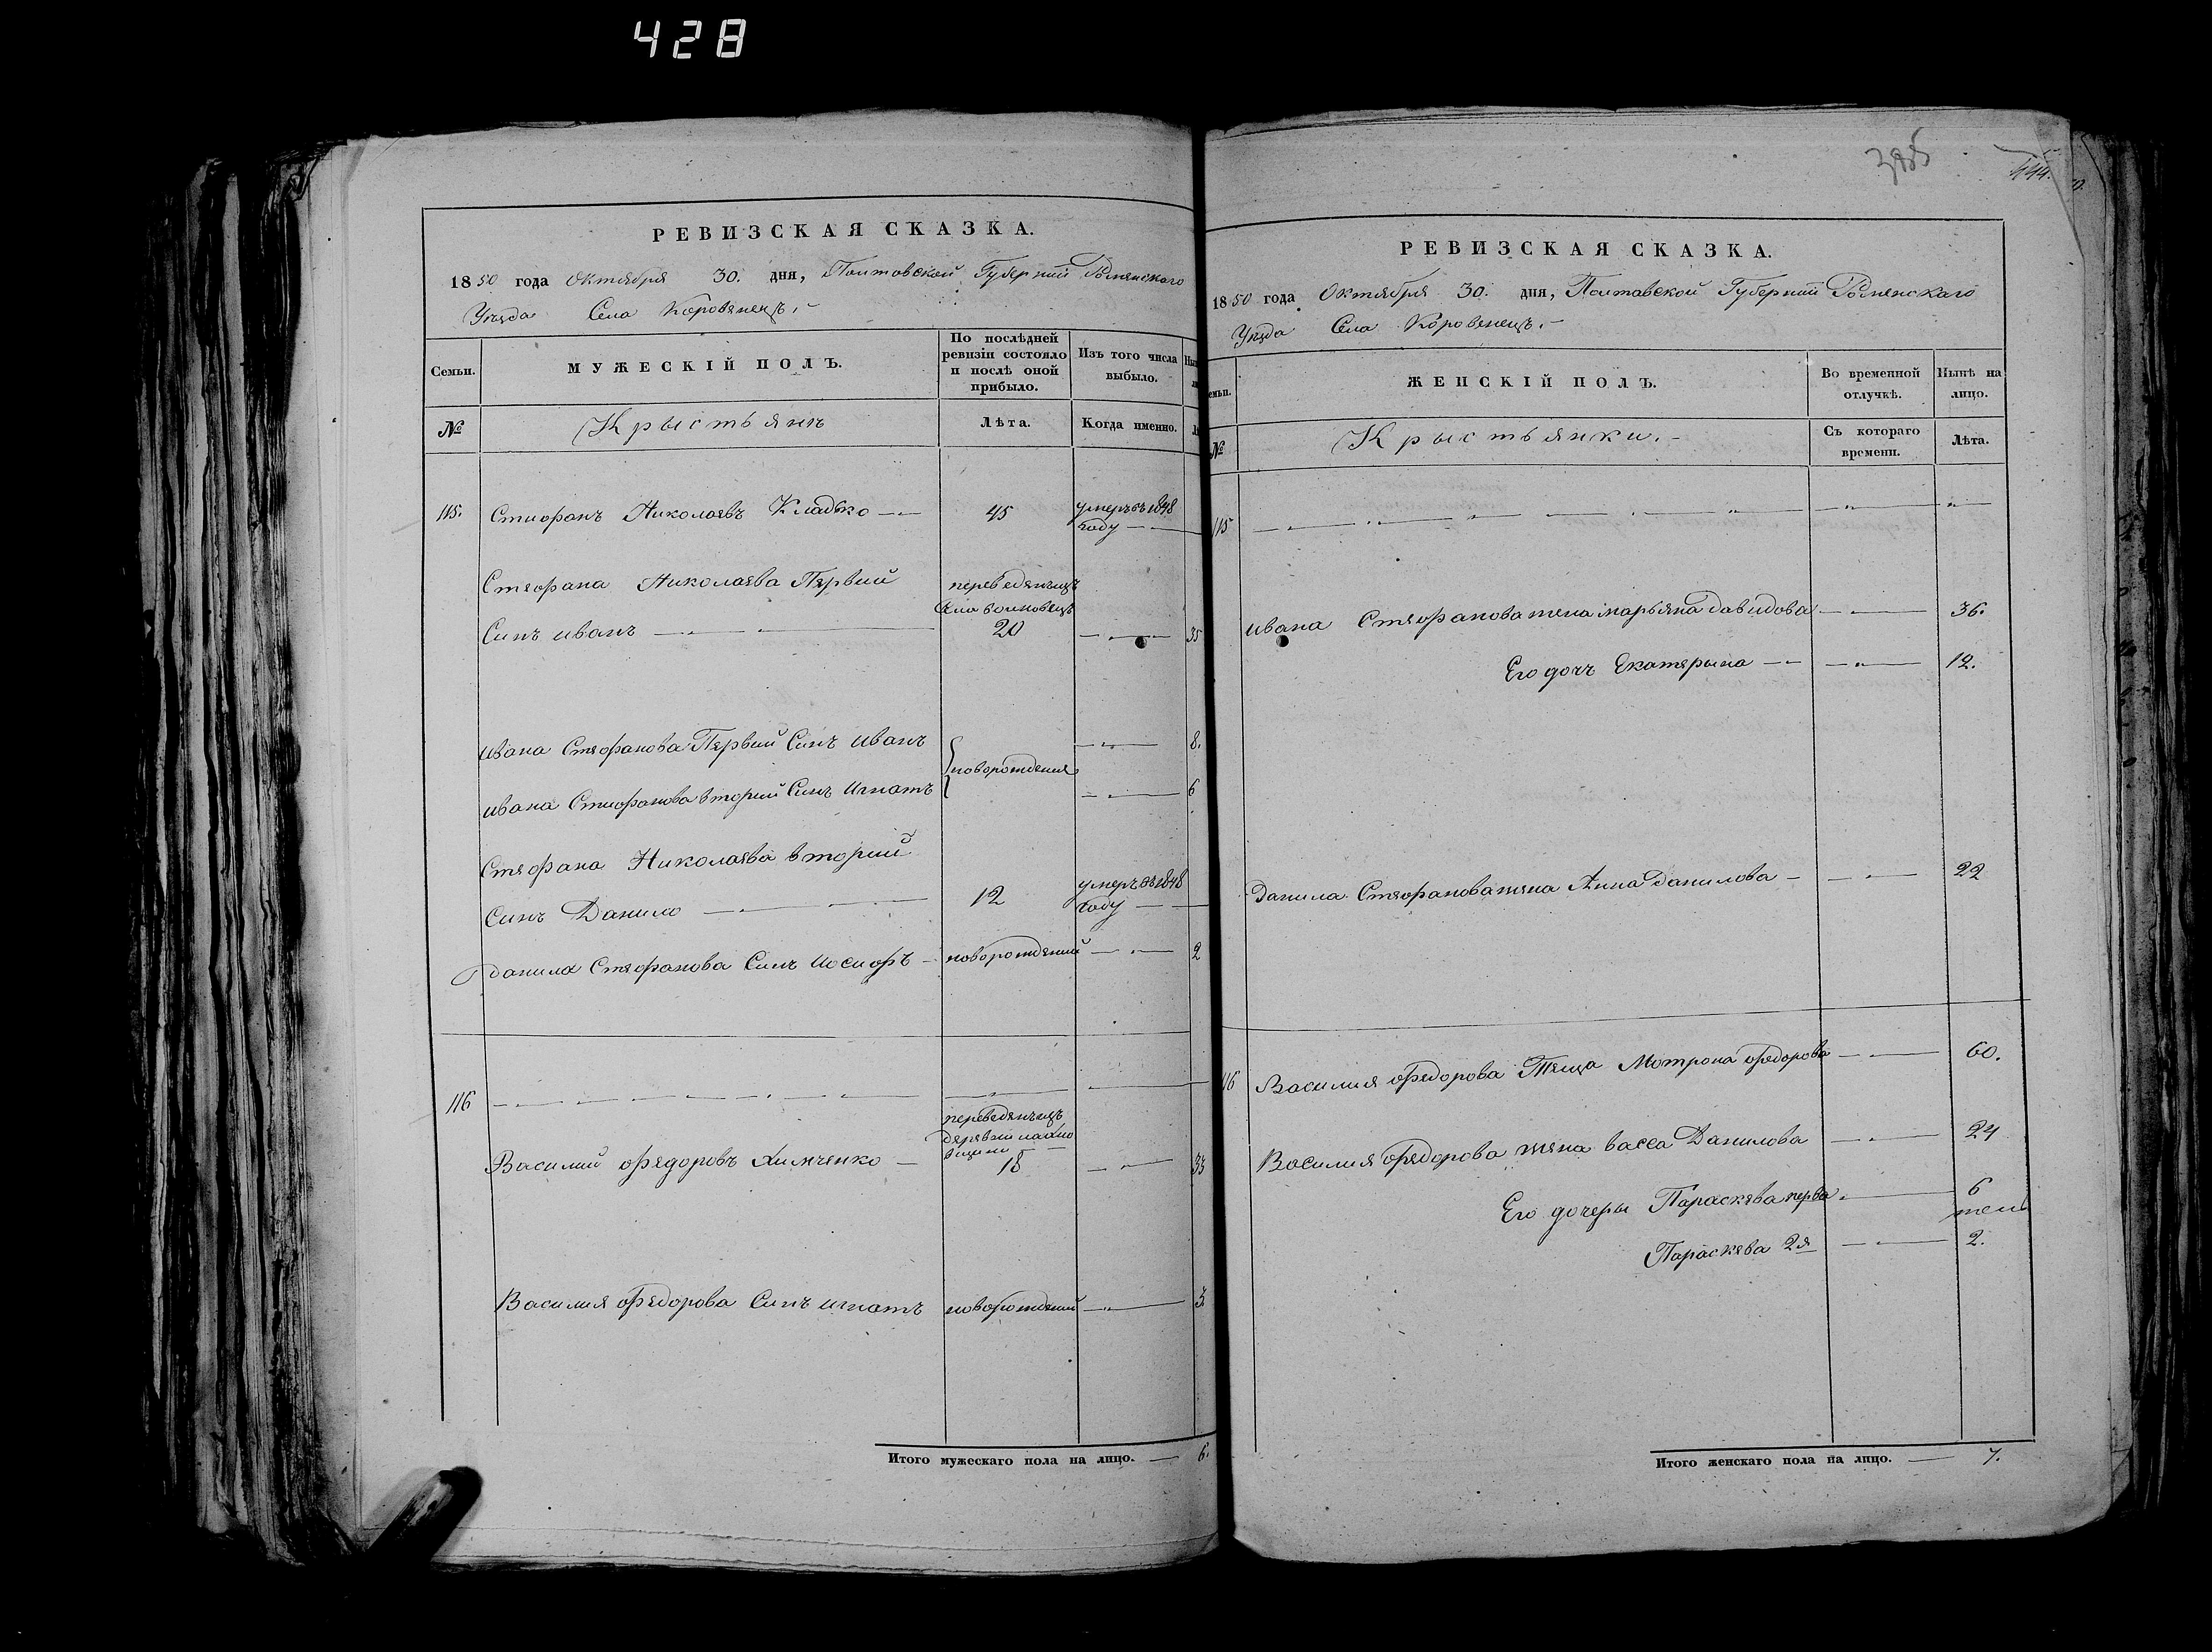 428
РЕВИЗСКАЯ СКАЗКА.
1850 года Октября 30. дня, Полтавской Губернии Роменскаго
Уезда Села Коровенецъ.
Семьи.
МУЖЕСКІЙ ПОЛЪ.
По послѣдней ревизіи состояло и послѣ оной прибыло.
Изъ того числа выбыло.
№
Крыстьянъ
Лѣта.
Когда именно.
115. Стиофанъ Николаевъ Кладько 45 умеръ въ 1848
году
Стефана Николаева Первий переведенъ изъ
Села
Синъ иванъ 20 35
ивана Стефанова Первий Синъ иванъ 8.
новорожденя
ивана Стиофанова вторий Синъ игнатъ 6
Стефана Николаева вторий
умеръ въ 1848
Синъ Данило 12 году
Данила Стефанова Синъ иосифъ новорождений 2
116
переведенъ изъ
деревни
Василий Федоровъ Химченко 18 33
Василия Федорова Синъ игнатъ новорожденний 3
Итого мужескаго пола на лицо. 6.
385
444.
РЕВИЗСКАЯ СКАЗКА.
1850 года Октября 30. дня, Полтавской Губерний Роменскаго
Уезда Села Коровенецъ.
ЖЕНСКІЙ ПОЛЪ.
Во временной отлучкѣ.
Нынѣ на лицо.
№
Крыстьянки.
Съ котораго времени.
Лѣта.
115
ивана Стефанова жена марьяна Давидова 36.
Его дочъ Екатерына 12.
Данила Стефанова жена Анна Данилова 22
116 Василия Федорова Теща Мотрона Федорова 60.
Василия Федорова жена васса Данилова 24
Его дочеры Параскева перва 6
Параскева 2я 2.
Итого женскаго пола на лицо. 7.